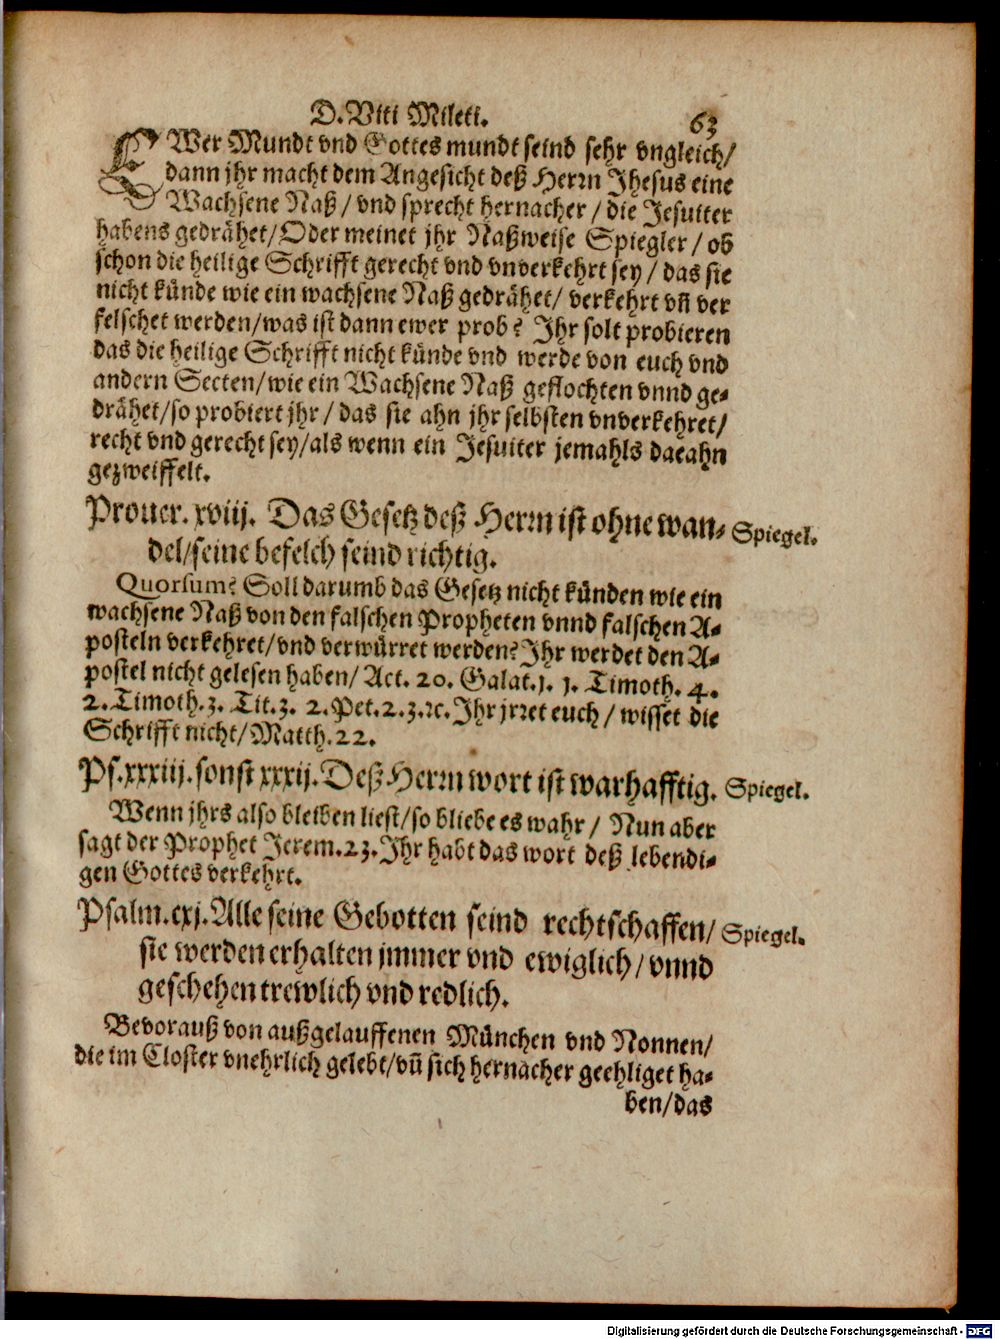 D. Viti Mileti. 63
EWer Mundt vnd Gottes mundt seind sehr vngleich/
dann jhr macht dem Angesicht deß Herrn Jhesus eine
Wachsene Naß/ vnd sprecht hernacher/ die Jesuiter
habens gedrähet/ Oder meinet jhr Naßweise Spiegler/ ob
schon die heilige Schrifft gerecht vnd vnverkehrt sey/ das sie
nicht künde wie ein wachsene Naß gedrähet/ verkehrt vñ ver
felschet werden/ was ist dann ewer prob? Jhr solt probieren
das die heilige Schrifft nicht künde vnd werde von euch vnd
andern Secten/ wie ein Wachsene Naß geflochten vnnd ge-
drähet/ so probiert jhr/ das sie ahn jhr selbsten vnverkehret/
recht vnd gerecht sey/ als wenn ein Jesuiter jemahls daeahn
gezweiffelt.
Prouer. xviij. Das Gesetz deß Herrn ist ohne wan- Spiegel.
del/ seine befelch seind richtig.
Quorsum? Soll darumb das Gesetz nicht künden wie ein
wachsene Naß von den falschen Propheten vnnd falschen A-
posteln verkehret/ vnd verwürret werden? Jhr werdet den A-
postel nicht gelesen haben/ Act. 20. Galat. 1. 1. Timoth. 4.
2. Timoth. 3. Tit. 3. 2. Pet. 2. 3. ꝛc. Jhr jrret euch/ wisset die
Schrifft nicht/ Matth. 22.
Ps. xxxiij. sonst xxxij. Deß Herrn wort ist warhafftig. Spiegel.
Wenn jhrs also bleiben liest/ so bliebe es wahr/ Nun aber
sagt der Prophet Jerem. 23. Jhr habt das wort deß lebendi-
gen Gottes verkehrt.
Psalm. cxj. Alle seine Gebotten seind rechtschaffen/ Spiegel.
sie werden erhalten jmmer vnd ewiglich/ vnnd
geschehen trewlich vnd redlich.
Bevorauß von außgelauffenen München vnd Nonnen/
die im Closter vnehrlich gelebt/ vñ sich hernacher geehliget ha-
ben/ das
Digitalisierung gefördert durch die Deutsche Forschungsgemeinschaft - DFG